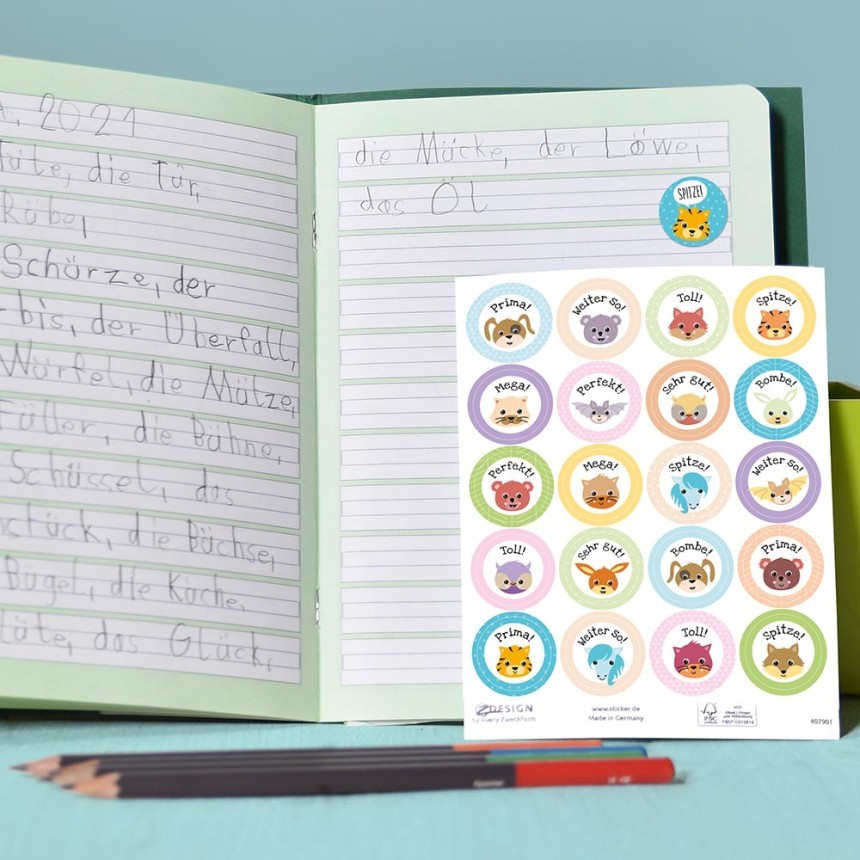 2021
die Tür,
Schürze, der
bis, der Überfall,
Würfel, die Mütze,
Füller, die Bühne,
Schüssel, das
die Büchse,
Bügel, die Küche,
das Glück,
die Mücke, der Löwe,
das Öl
SPITZE!
Prima! Weiter so! Toll! Spitze!
Mega! Perfekt! Sehr gut! Bombe!
Perfekt! Mega! Spitze! Weiter so!
Toll! Sehr gut! Bombe! Prima!
Prima! Weiter so! Toll! Spitze!
ZDESIGN
by Avery Zweckform
www.sticker.de
Made in Germany
FSC